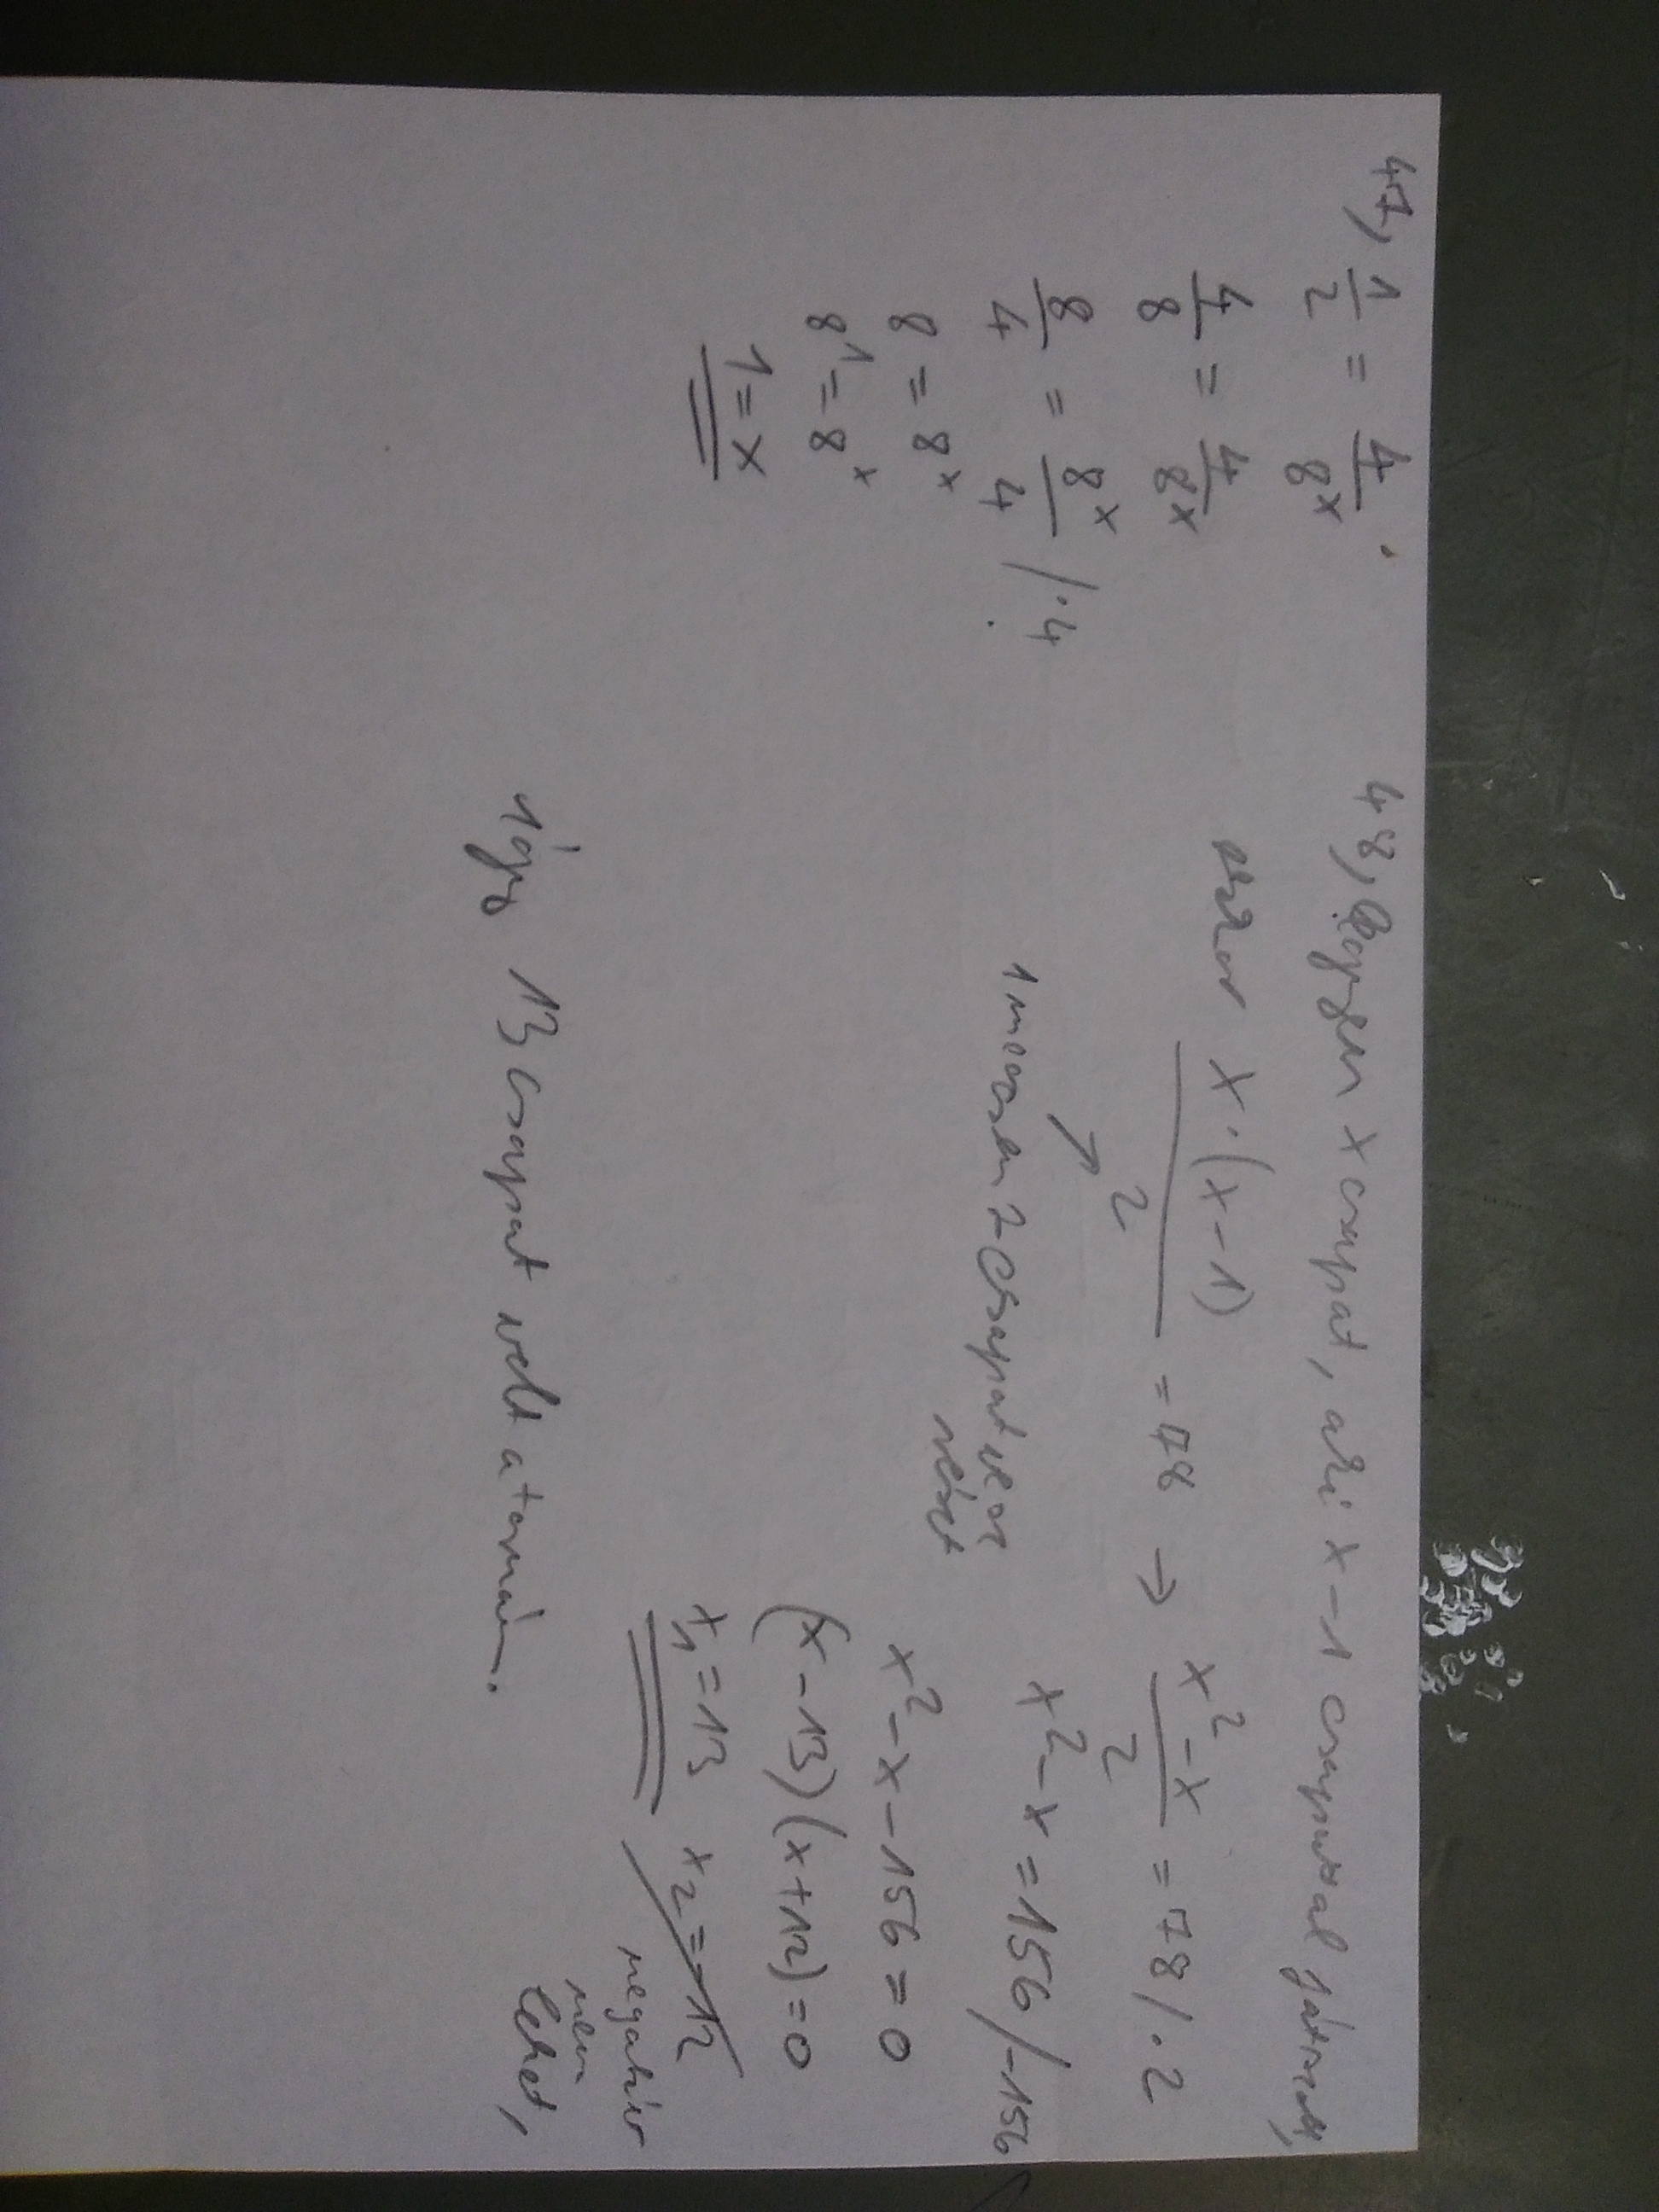 47, 1/2 = 4/8^x
4/8 = 4/8^x
8/4 = 8^x/4 /·4
8 = 8^x
8^1 = 8^x
1 = x
48, Legyen x csapat, aki x-1 csapattal játszott,
ekkor x·(x-1)/2 = 78 → x²-x/2 = 78 /·2
1 meccsen 2 csapat vesz
részt
x²-x = 156 /-156
x²-x-156 = 0
(x-13)(x+12) = 0
x₁ = 13 x₂ = -12
negatív
nem
lehet,
Tehát 13 csapat volt a tornán.